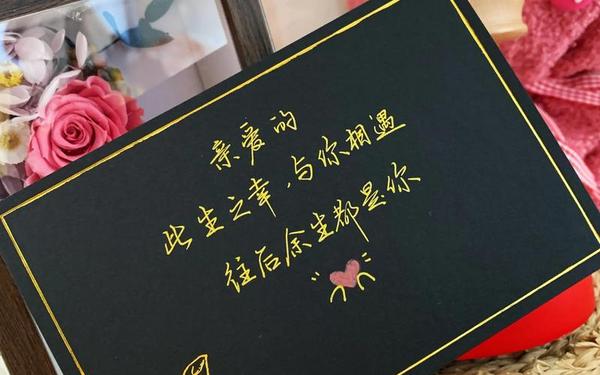 亲爱的
此生之幸,与你相遇
往后余生都是你